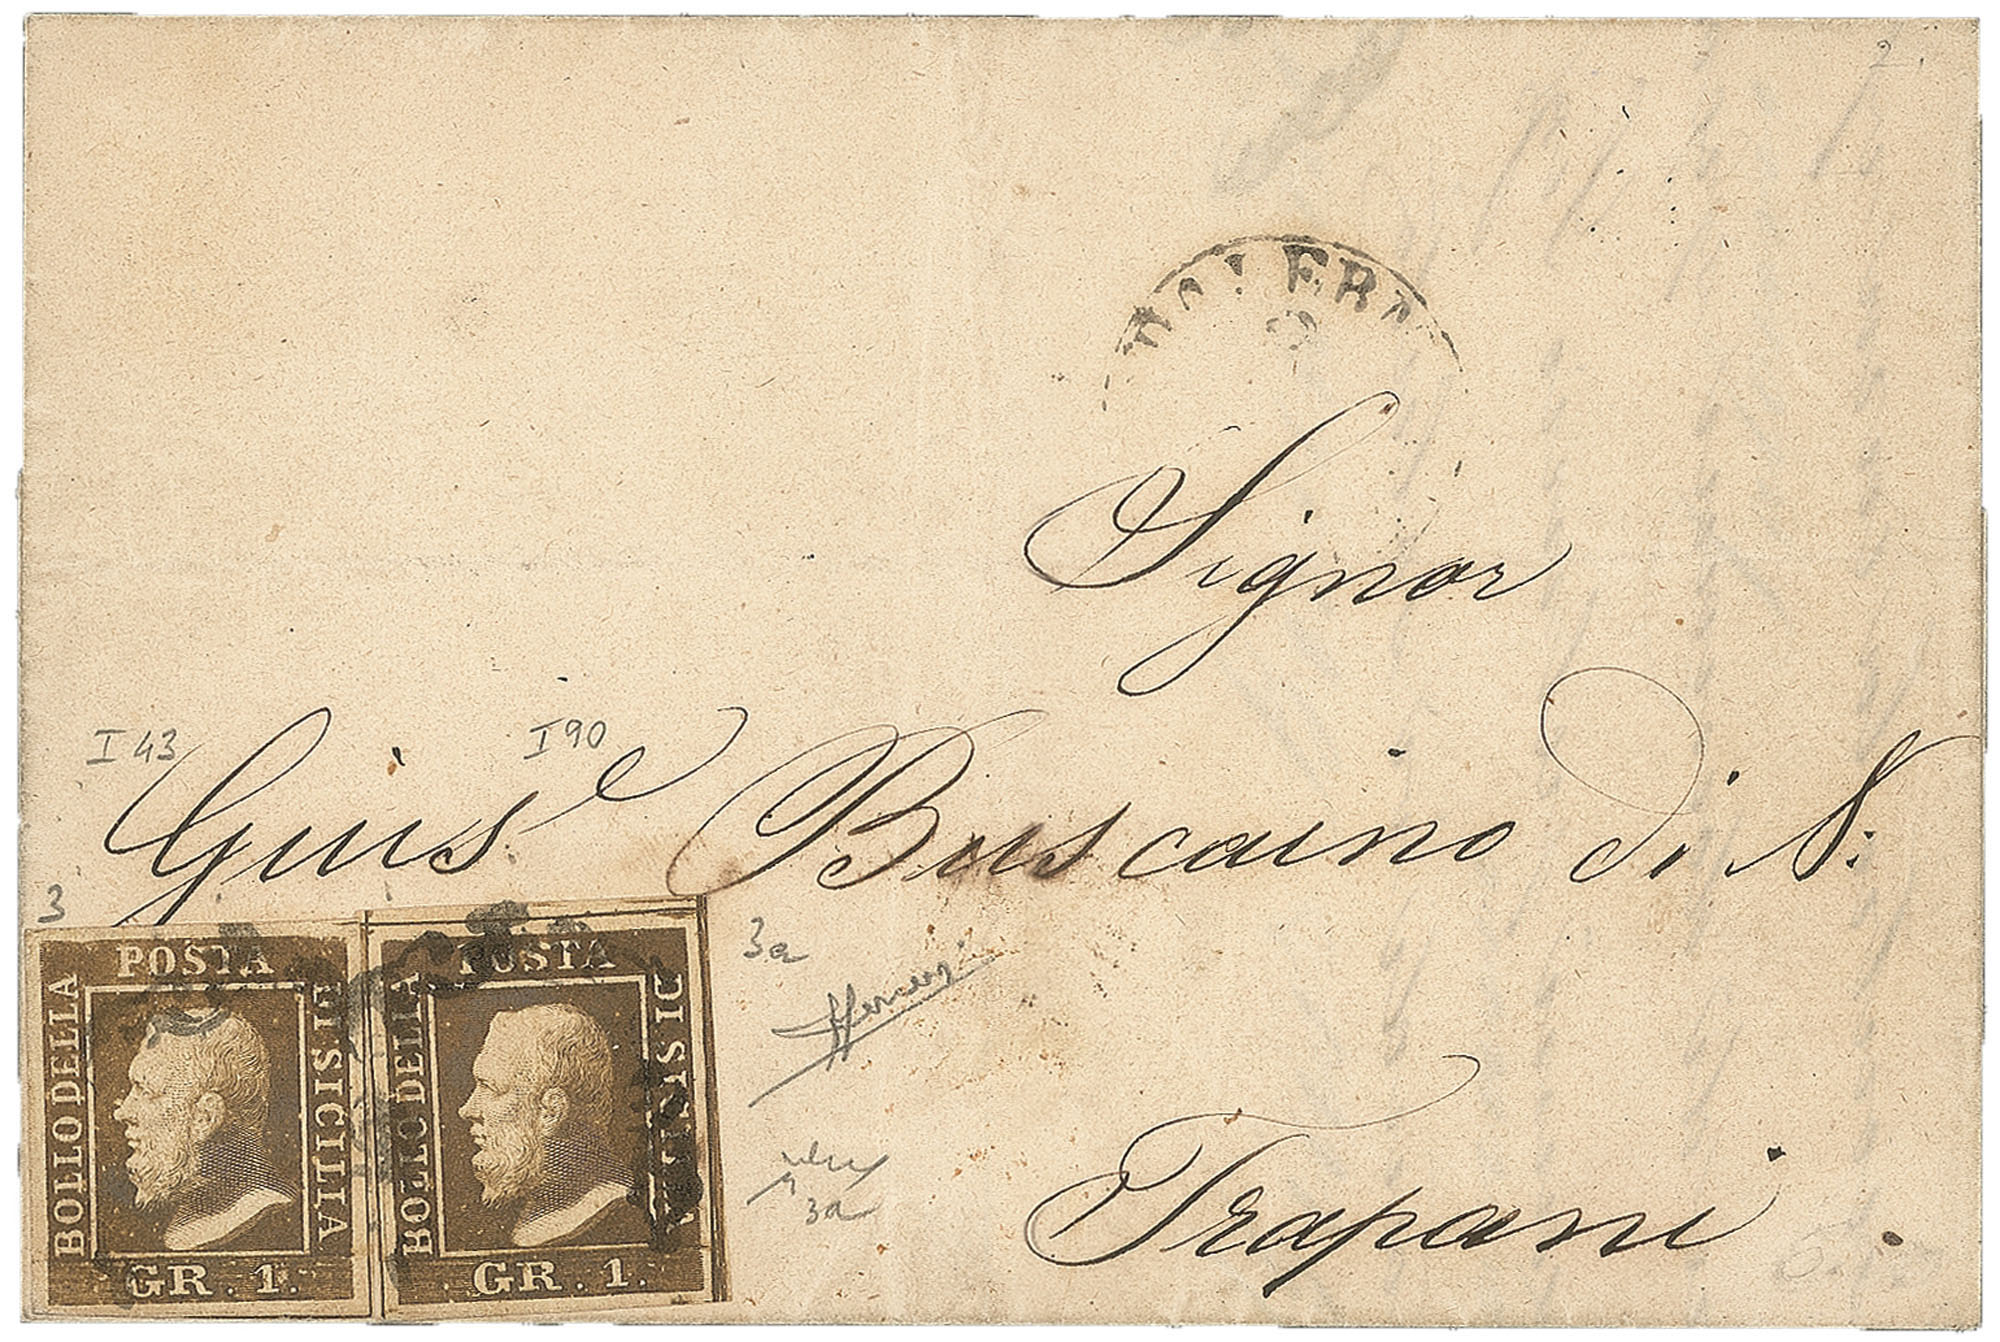 2.
Signor
I 43
I 90
Guis.e Buscaino di N:
3
3a
POSTA
BOLLO DELLA
DI SICILIA
GR. 1.
POSTA
BOLLO DELLA
DI SICILIA
GR. 1.
3a
Trapani.